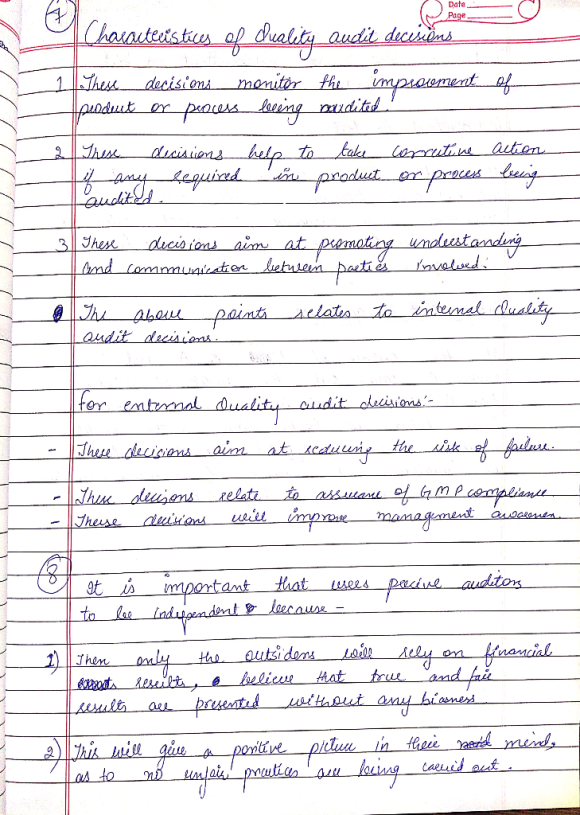 Date
Page
7
Characteristics of Quality audit decisions
1 These decisions monitor the improvement of
product or process being audited.
2 These decisions help to take corrective action
if any required in product or process being
audited.
3 These decisions aim at promoting understanding
and communication between parties involved.
The above points relates to internal Quality
audit decisions.
for external Quality audit decisions:-
- These decisions aim at reducing the risk of failure.
- These decisions relate to assurance of GMP compliance
- These decisions will improve management awareness
8
It is important that users percive auditors
to be independent because -
1) Then only the outsiders will rely on financial
results, believe that true and fair
results are presented without any biasness
2) This will give a positive picture in their mind,
as to no unfair practices are being carried out.